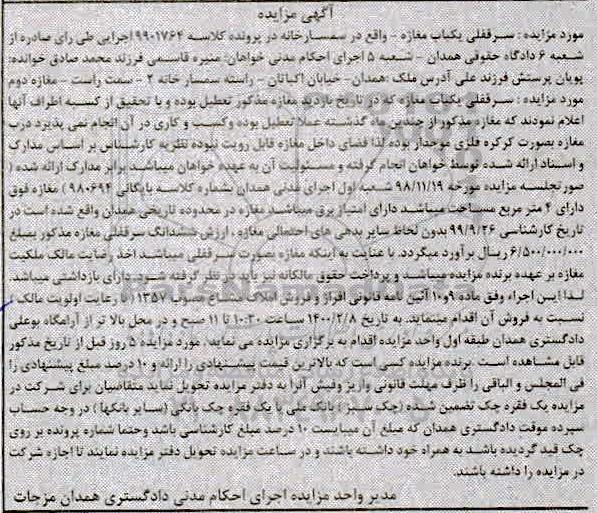 آگهی مزایده
مورد مزایده : سرقفلی یکباب مغازه - واقع در سمسارخانه در پرونده کلاسه ۹۹۰۱۷۶۴ اجرایی طی رای صادره از
شعبه ۶ دادگاه حقوقی همدان - شعبه ۵ اجرای احکام مدنی خواهان: منیره قاسمی فرزند محمد صادق خوانده:
پویان پرستش فرزند علی آدرس ملک :همدان- خیابان اکباتان - راسته سمسار خانه ۲ - سمت راست - مغازه دوم
مورد مزایده : سرقفلی یکباب مغازه که در تاریخ بازدید مغازه مذکور تعطیل بوده و با تحقیق از کسبه اطراف آنها
اعلام نمودند که مغازه مذکور از چندین ماه گذشته عملا تعطیل بوده وکسب و کاری در آن انجام نمی پذیرد درب
مغازه بصورت کرکره فلزی موجدار بوده لذا فضای داخل مغازه قابل رویت نبوده نظریه کارشناس بر اساس مدارک
و اسناد ارائه شده توسط خواهان انجام گرفته و مسئولیت آن به عهده خواهان میباشد برابر مدارک ارائه شده (
صورتجلسه مزایده مورخه ۹۸/۱۱/۱۹ شعبه اول اجرای مدنی همدان بشماره کلاسه بایگانی ۹۸۰۶۹۴ ) مغازه فوق
دارای ۴ متر مربع مساحت میباشد دارای امتیاز برق میباشد مغازه در محدوده تاریخی همدان واقع شده است در
تاریخ کارشناسی ۹۹/۹/۲۶ بدون لحاظ سایر بدهی های احتمالی مغازه ، ارزش ششدانگ سرقفلی مغازه مذکور بمبلغ
۶/۵۰۰/۰۰۰/۰۰۰ ریال برآورد میگردد. با عنایت به اینکه مغازه بصورت سرقفلی میباشد اخذ رضایت مالک ملکیت
مغازه بر عهده برنده مزایده میباشد و پرداخت حقوق مالکانه نیز باید در نظر گرفته شود. دارای بازداشتی میباشد.
لذا این اجراء وفق ماده ۹ و ۱۰ آئین نامه قانونی افراز و فروش املاک مشاع مصوب ۱۳۵۷ با رعایت اولویت مالک
نسبت به فروش آن اقدام مینماید. به تاریخ ۱۴۰۰/۲/۸ ساعت ۱۰:۳۰ تا ۱۱ صبح و در محل بالا تر از آرامگاه بوعلی
دادگستری همدان طبقه اول واحد مزایده اقدام به برگزاری مزایده می نماید. مورد مزایده ۵ روز قبل از تاریخ مذکور
قابل مشاهده است . برنده مزایده کسی است که بالاترین قیمت پیشنهادی را ارائه و ۱۰ درصد مبلغ پیشنهادی را
فی المجلس و الباقی را ظرف مهلت قانونی واریز و فیش آنرا به دفتر مزایده تحویل نماید متقاضیان برای شرکت در
مزایده یک فقره چک تضمین شده (چک سبز ) بانک ملی یا یک فقره چک بانکی (سایر بانکها ) در وجه حساب
سپرده موقت دادگستری همدان که مبلغ آن میبایست ۱۰ درصد مبلغ کارشناسی باشد وحتما شماره پرونده بر روی
چک قید گردیده باشد به همراه خود داشته باشند و در ساعت مزایده تحویل دفتر مزایده نمایند تا اجازه شرکت
در مزایده را داشته باشند.
مدیر واحد مزایده اجرای احکام مدنی دادگستری همدان مزجات